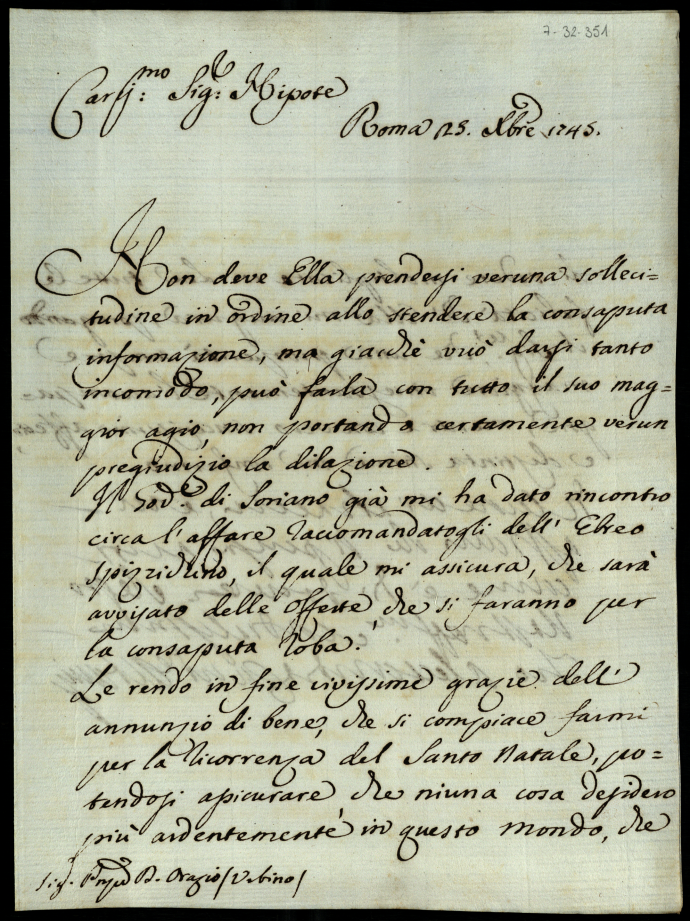 7-32-351
Carissmo: Sigr: Nipote
Roma 25. Xbre 1745.
Non deve Ella prendersi veruna solleci=
tudine in ordine allo stendere la consaputa
informazione, ma giacchè vuò darsi tanto
incomodo, può farla con tutto il suo mag=
gior agio, non portando certamente verun
pregiudizio la dilazione.
Il Gode. di Soriano già mi ha dato rincontro
circa l'affare raccomandatogli dell'Ebreo
Spizzichino, il quale mi assicura, che sarà
avvisato delle offerte, che si faranno per
la consaputa roba.
Le rendo in fine vivissime grazie dell'
annunzio di bene, che si compiace farmi
per la ricorrenza del Santo Natale, po=
tendosi assicurare che niuna cosa desidero
più ardentemente in questo mondo, che
Sigr. D. Orazio (Urbino)